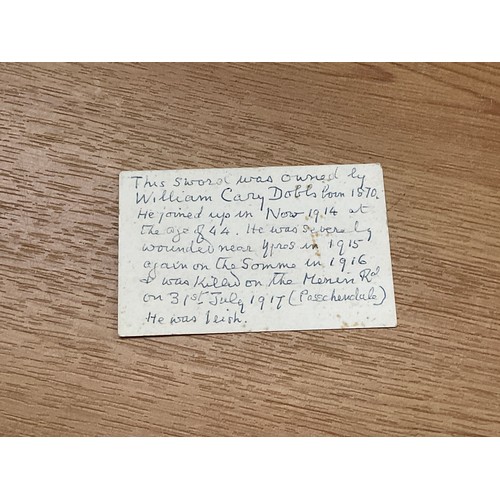 This sword was owned by
William Cary Dobbs born 1870.
He joined up in Nov 1914 at
the age of 44. He was severely
wounded near Ypres in 1915
again on the Somme in 1916
& was killed on the Menin Rd
on 31st July 1917 (Passchendale)
He was Irish.